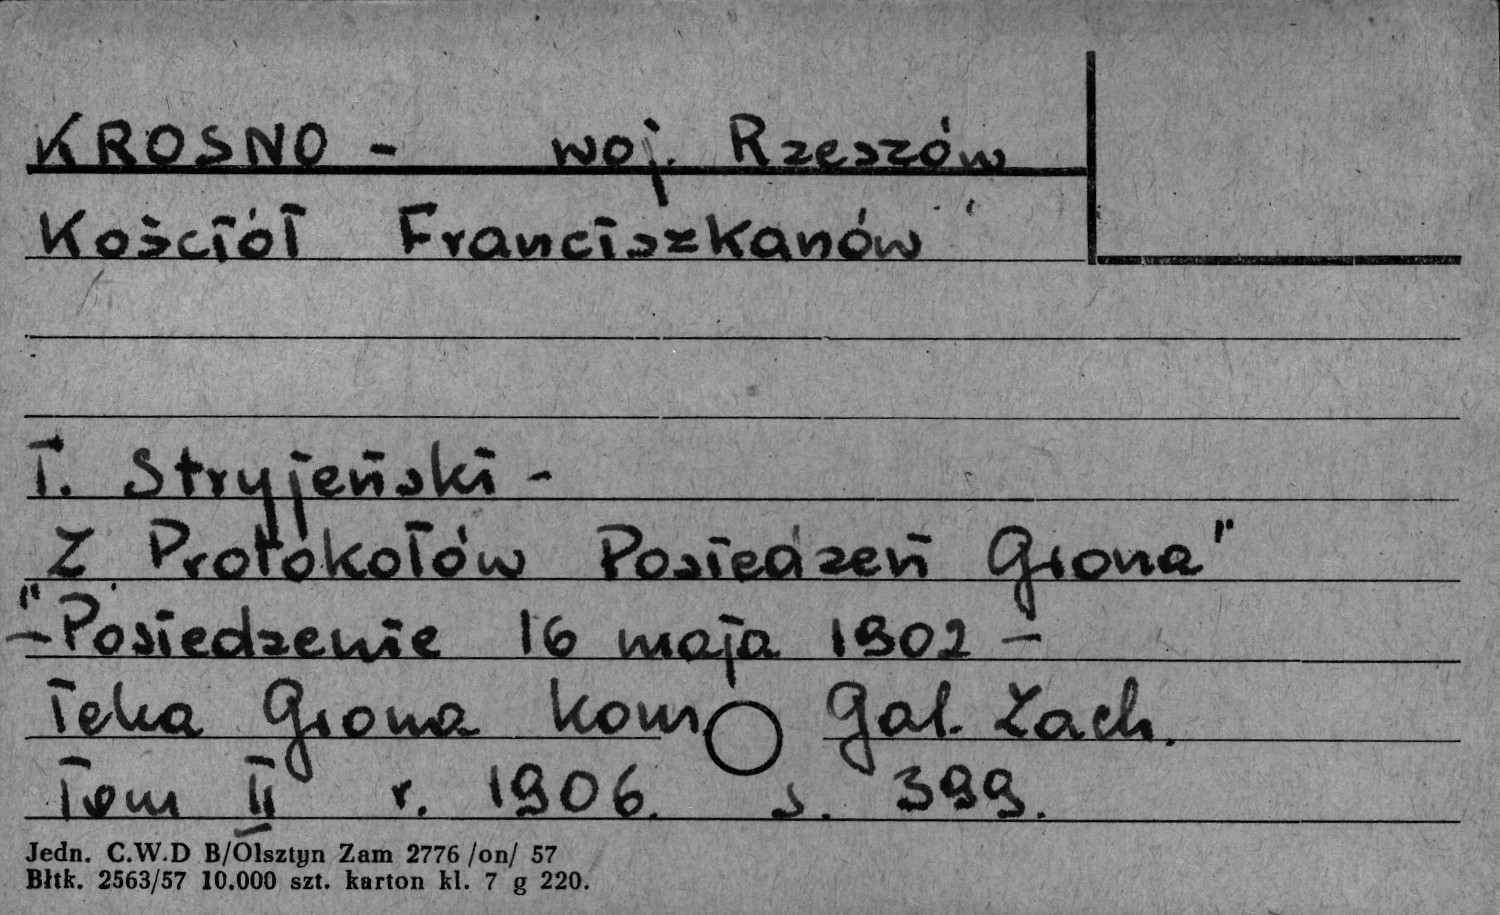 KROSNO - woj. Rzeszów
Kościół Franciszkanów
T. Stryjeński -
Z Protokołów Posiedzeń Grona"
"-Posiedzenie 16 maja 1902 -
Teka Grona kons. Gal. Zach.
Tom II r. 1906. s. 399.
Jedn. C.W.D B/Olsztyn Zam 2776 /on/ 57
Błtk. 2563/57 10.000 szt. karton kl. 7 g 220.